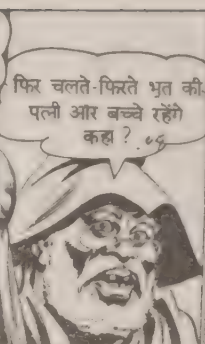 फिर चलते-फिरते भूत की
पत्नी और बच्चे रहेंगे
कहा ?